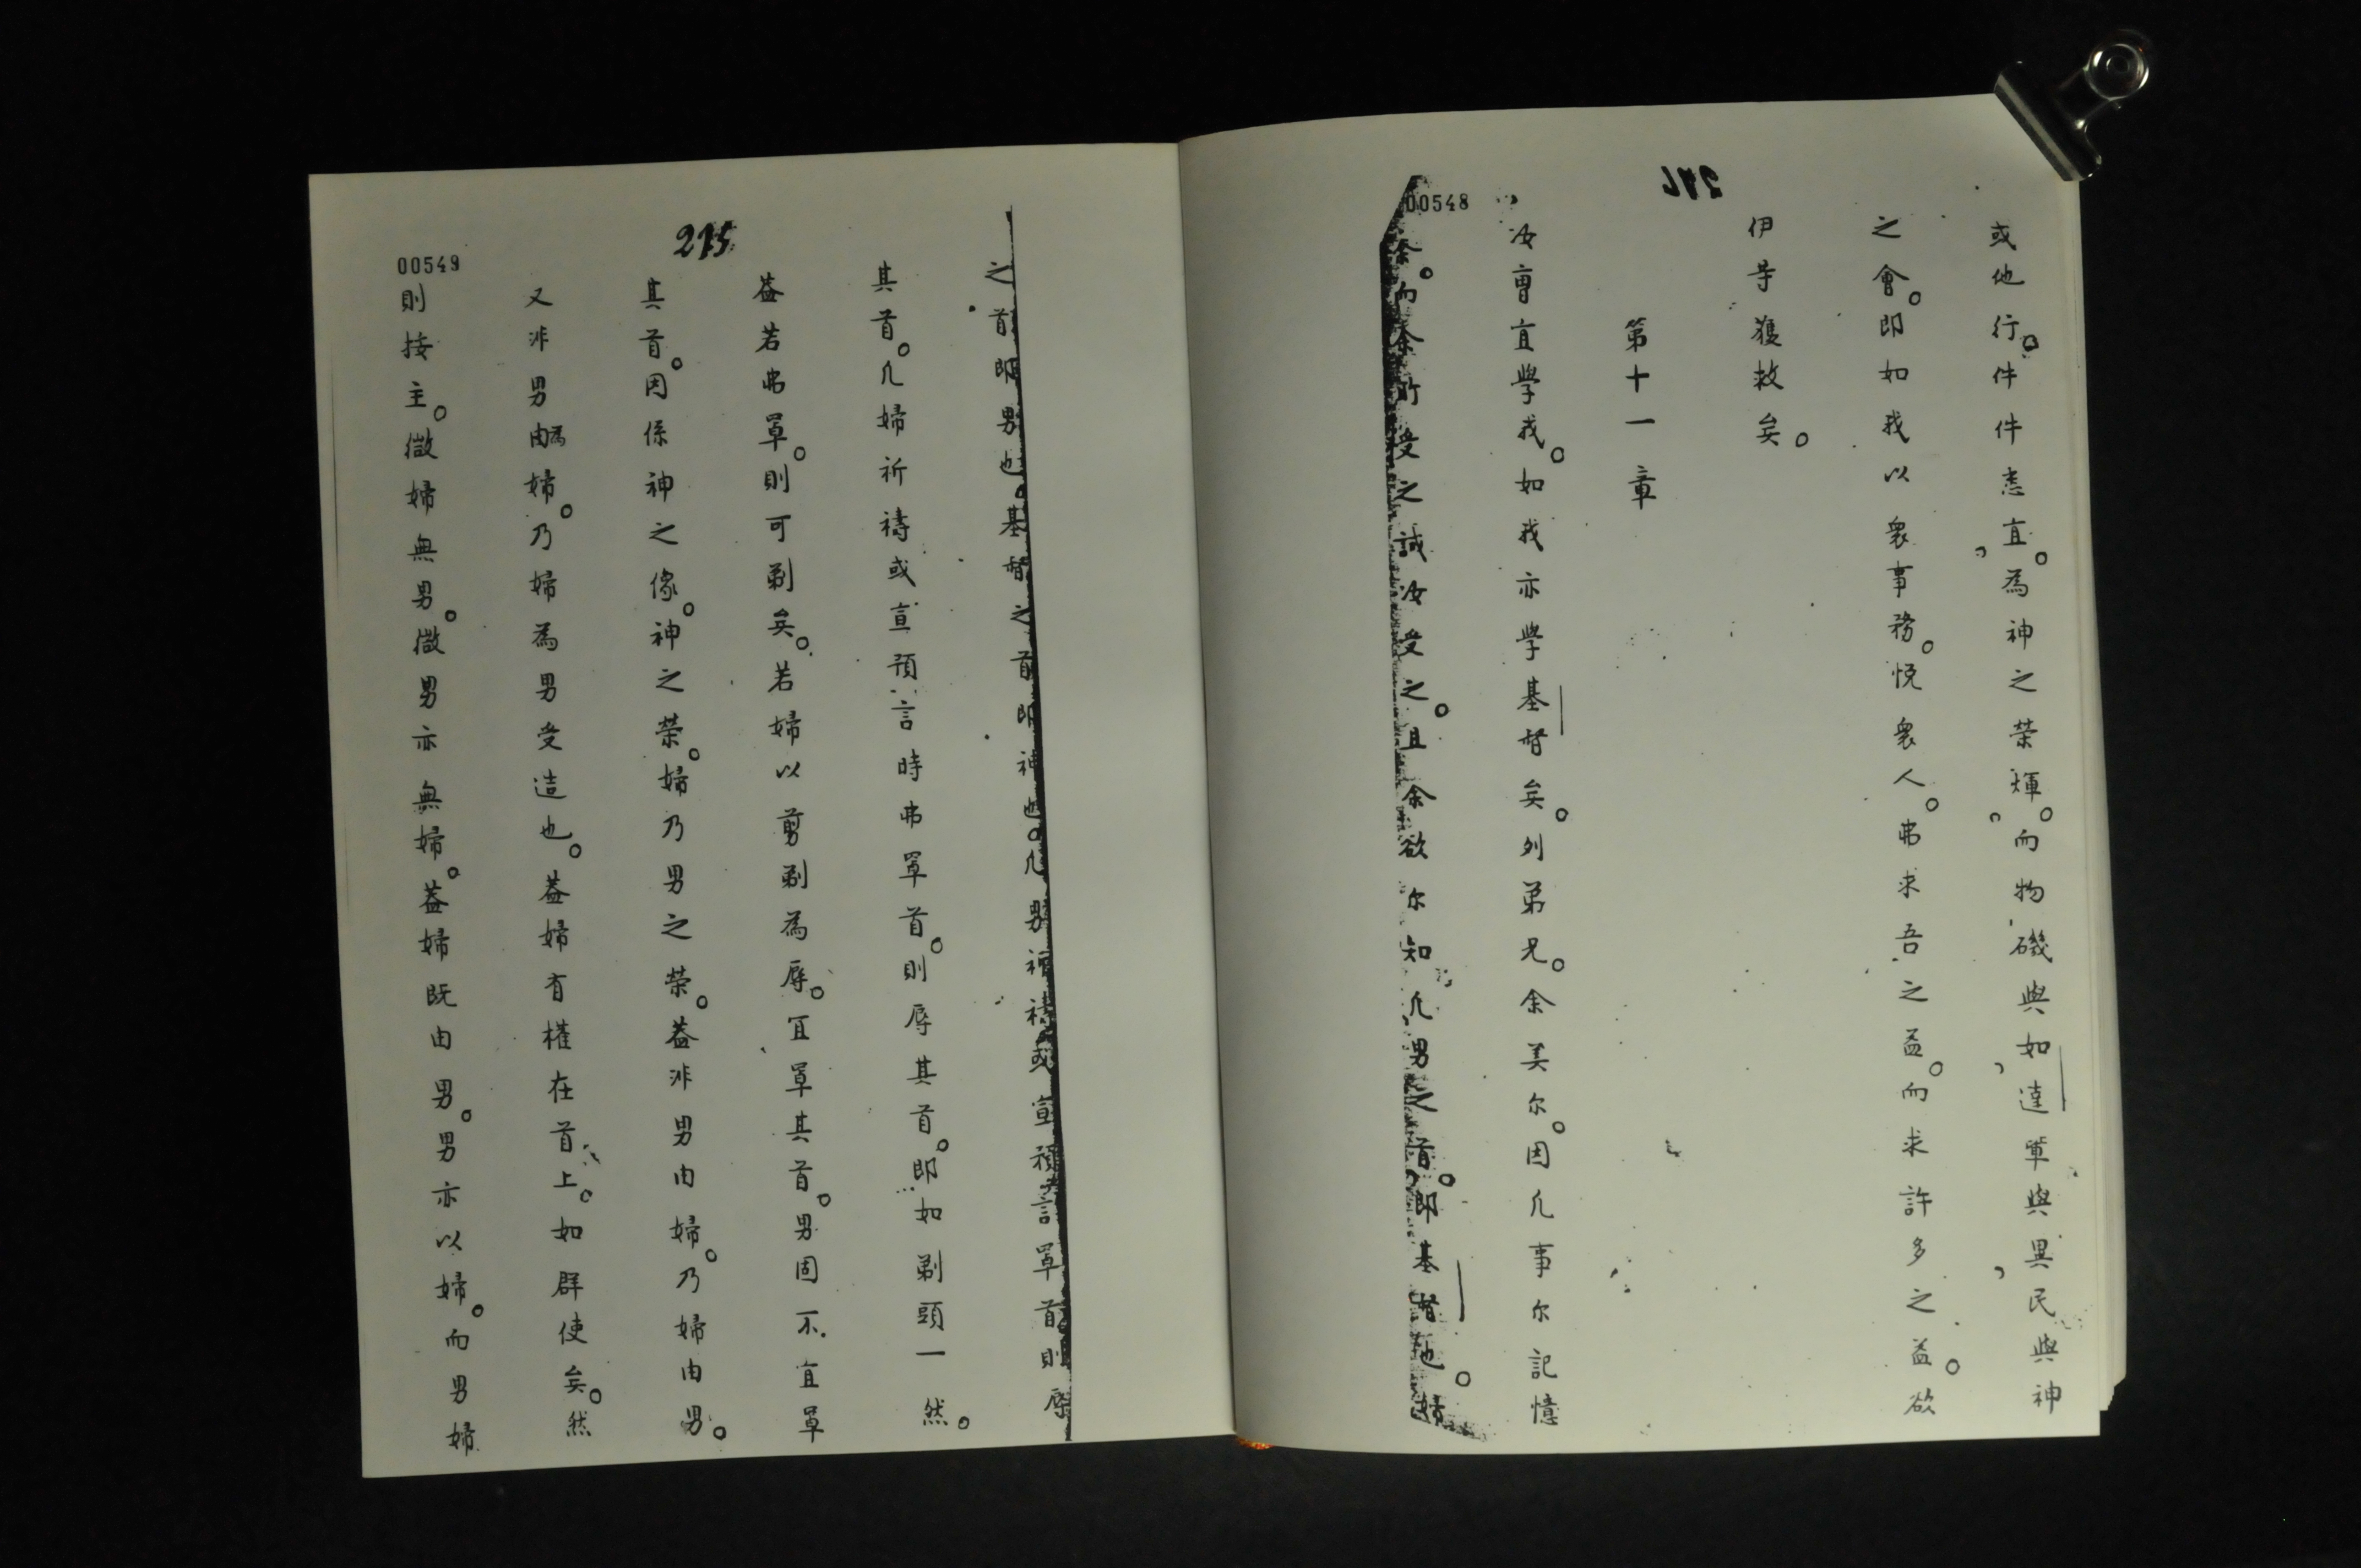 00548
或他行。件件悉宜。為神之荣煇。而物磯與如達軰與異民與神
之會。即如我以衆事務。悦衆人。弗求吾之益。而求許多之益。欲
伊等獲救矣。
第十一章
汝曹宜學我。如我亦學基督矣。列弟兄。余美尔。因凢事尔記憶
余。而余所受之誡汝受之。且余欲尔知凢男之首。即基督也。
00549
215
之首即男也。基督之首即神也。凢男祈禱或宣預言罩首則辱
其首。凢婦祈禱或宣預言時弗罩首。則辱其首。即如剃頭一然。
葢若弗罩。則可剃矣。若婦以剪剃為辱。宜罩其首。男固不宜罩
其首。因係神之像。神之荣。婦乃男之荣。葢非男由婦。乃婦由男。
又非男為婦。乃婦為男受造也。葢婦有權在首上。如群使矣。然
則接主。微婦無男。微男亦無婦。葢婦既由男。男亦以婦。而男婦